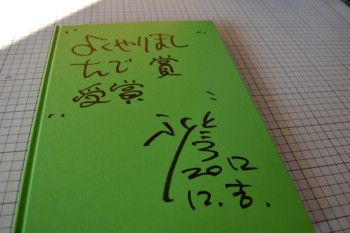 "よくやりまし
たで賞
受賞"
2012
12.吉.